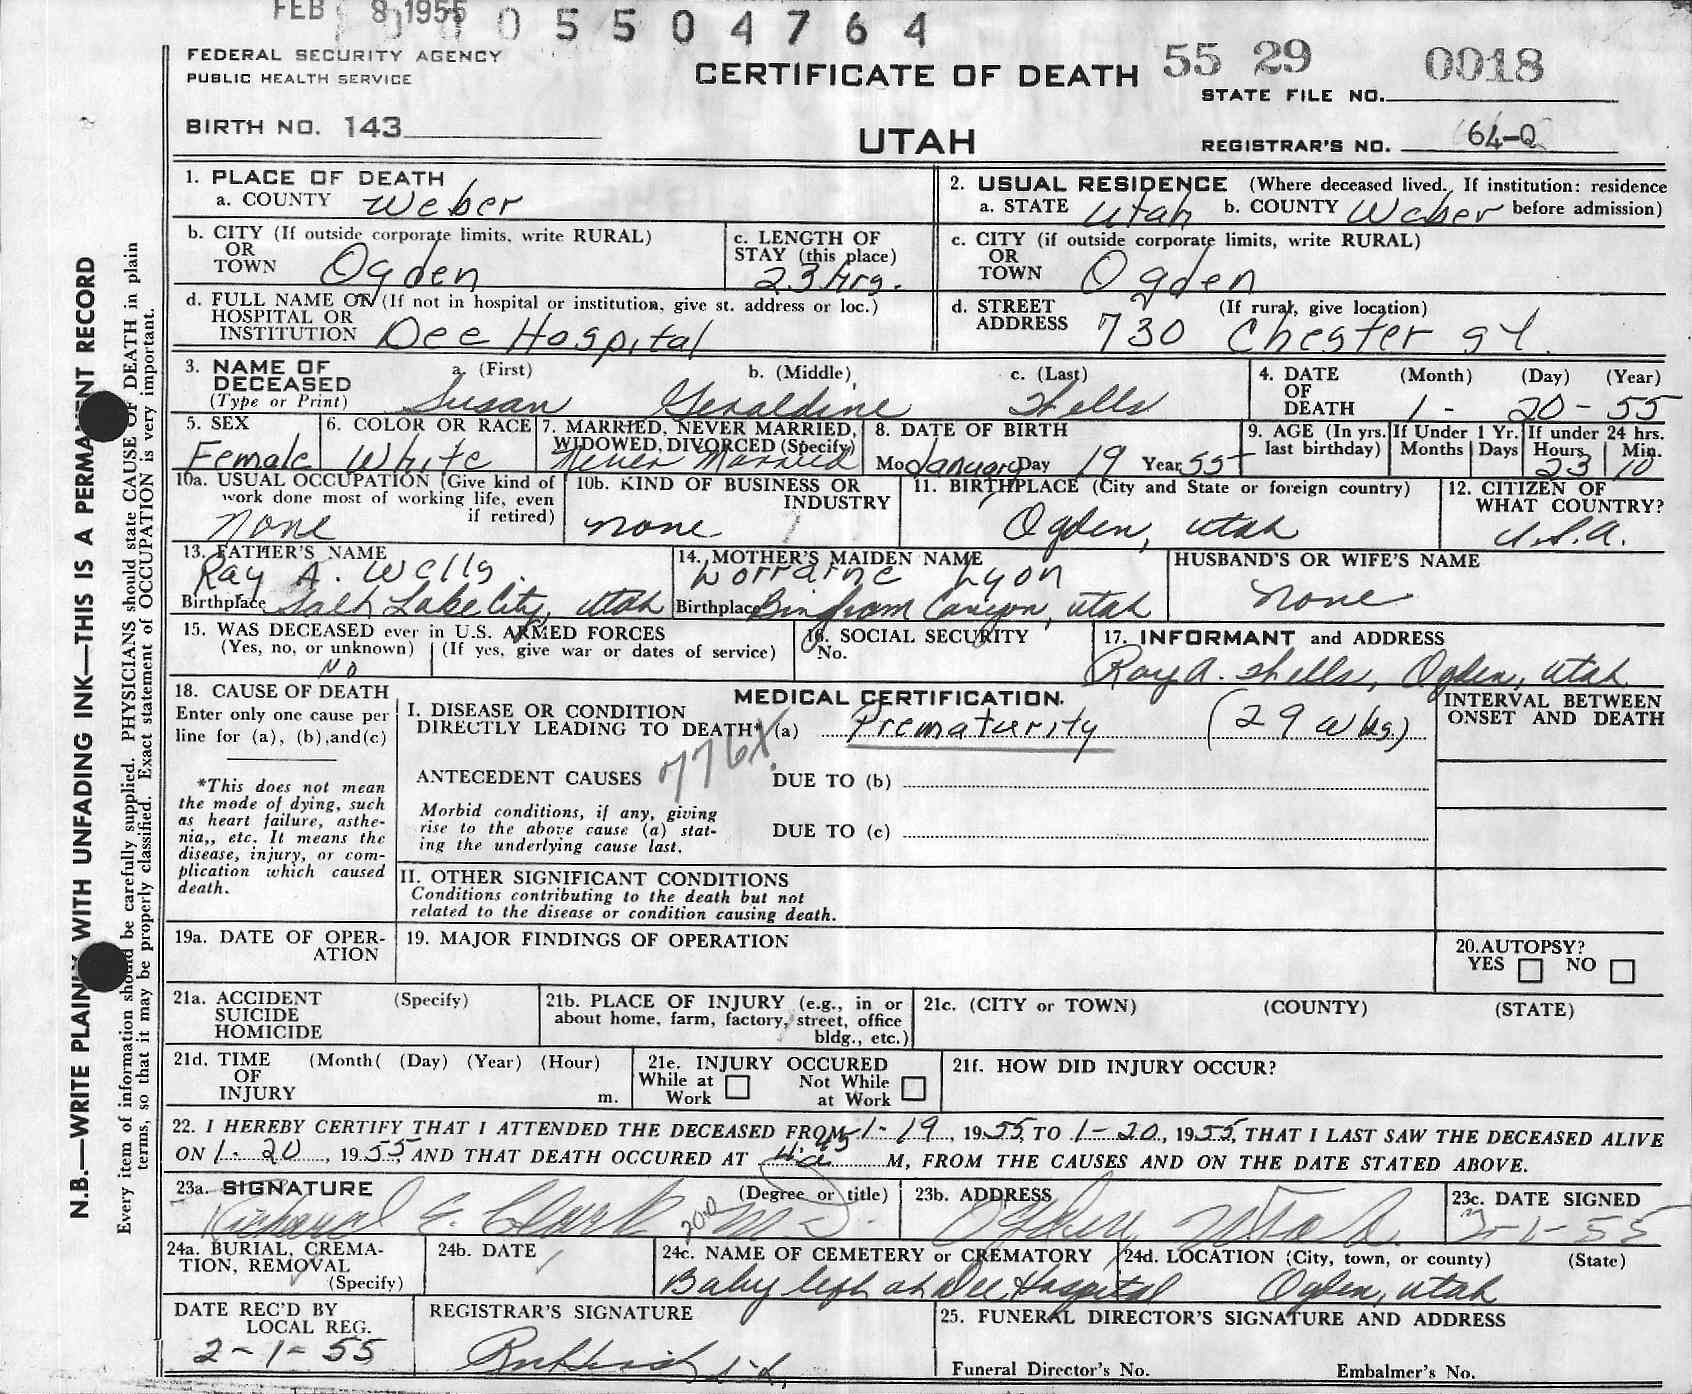 FEB 8 1955
5 5 0 4 7 6 4
FEDERAL SECURITY AGENCY
PUBLIC HEALTH SERVICE
CERTIFICATE OF DEATH
55 29 0018
STATE FILE NO.
BIRTH NO. 143
UTAH
REGISTRAR'S NO. 64-Q
N.B.—WRITE PLAINLY WITH UNFADING INK—THIS IS A PERMANENT RECORD
Every item of information should be carefully supplied. PHYSICIANS should state CAUSE OF DEATH in plain
terms, so that it may be properly classified. Exact statement of OCCUPATION is very important.
1. PLACE OF DEATH
a. COUNTY Weber
2. USUAL RESIDENCE (Where deceased lived. If institution: residence
a. STATE Utah b. COUNTY Weber before admission)
b. CITY (If outside corporate limits, write RURAL)
OR
TOWN Ogden
c. LENGTH OF
STAY (this place)
23 hrs.
c. CITY (if outside corporate limits, write RURAL)
OR
TOWN Ogden
d. FULL NAME OF (If not in hospital or institution, give st. address or loc.)
HOSPITAL OR
INSTITUTION Dee Hospital
d. STREET (If rural, give location)
ADDRESS 730 Chester St.
3. NAME OF a. (First) b. (Middle) c. (Last)
DECEASED
(Type or Print) Susan Geraldine
4. DATE (Month) (Day) (Year)
OF
DEATH 1- 20- 55
5. SEX
Female
6. COLOR OR RACE
White
7. MARRIED, NEVER MARRIED,
WIDOWED, DIVORCED (Specify)
Never Married
8. DATE OF BIRTH
Mo January Day 19 Year 55
9. AGE (In yrs.
last birthday)
If Under 1 Yr.
Months Days
If under 24 hrs.
Hours Min.
23 10
10a. USUAL OCCUPATION (Give kind of
work done most of working life, even
if retired)
None
10b. KIND OF BUSINESS OR
INDUSTRY
none
11. BIRTHPLACE (City and State or foreign country)
Ogden, Utah
12. CITIZEN OF
WHAT COUNTRY?
U.S.A.
13. FATHER'S NAME
Ray A. Wells.
Birthplace Salt Lake City, Utah
14. MOTHER'S MAIDEN NAME
Lorraine Lyon
Birthplace Bingham Canyon, Utah
HUSBAND'S OR WIFE'S NAME
None
15. WAS DECEASED ever in U.S. ARMED FORCES
(Yes, no, or unknown) (If yes, give war or dates of service)
No
16. SOCIAL SECURITY
No.
17. INFORMANT and ADDRESS
Ray A. Ogden, Utah
18. CAUSE OF DEATH
Enter only one cause per
line for (a), (b),and(c)
*This does not mean
the mode of dying, such
as heart failure, asthe-
nia,, etc. It means the
disease, injury, or com-
plication which caused
death.
MEDICAL CERTIFICATION.
I. DISEASE OR CONDITION
DIRECTLY LEADING TO DEATH* (a) Prematurity (29 wks.)
776X
ANTECEDENT CAUSES DUE TO (b)
Morbid conditions, if any, giving
rise to the above cause (a) stat-
ing the underlying cause last.
DUE TO (c)
II. OTHER SIGNIFICANT CONDITIONS
Conditions contributing to the death but not
related to the disease or condition causing death.
INTERVAL BETWEEN
ONSET AND DEATH
19a. DATE OF OPER-
ATION
19. MAJOR FINDINGS OF OPERATION
20.AUTOPSY?
YES NO
21a. ACCIDENT (Specify)
SUICIDE
HOMICIDE
21b. PLACE OF INJURY (e.g., in or
about home, farm, factory, street, office
bldg., etc.)
21c. (CITY or TOWN) (COUNTY) (STATE)
21d. TIME (Month( (Day) (Year) (Hour)
OF
INJURY m.
21e. INJURY OCCURED
While at Work
Not While at Work
21f. HOW DID INJURY OCCUR?
22. I HEREBY CERTIFY THAT I ATTENDED THE DECEASED FROM 1-19, 1955, TO 1-20, 1955, THAT I LAST SAW THE DECEASED ALIVE
ON 1-20, 1955, AND THAT DEATH OCCURED AT 4:45 a M, FROM THE CAUSES AND ON THE DATE STATED ABOVE.
23a. SIGNATURE (Degree or title)
Richard E. Clark M.D.
23b. ADDRESS
Ogden, Utah
23c. DATE SIGNED
2-1-55
24a. BURIAL, CREMA-
TION, REMOVAL
(Specify)
24b. DATE
24c. NAME OF CEMETERY or CREMATORY
Baby left at Dee Hospital
24d. LOCATION (City, town, or county) (State)
Ogden, Utah
DATE REC'D BY
LOCAL REG.
2-1-55
REGISTRAR'S SIGNATURE
25. FUNERAL DIRECTOR'S SIGNATURE AND ADDRESS
Funeral Director's No. Embalmer's No.